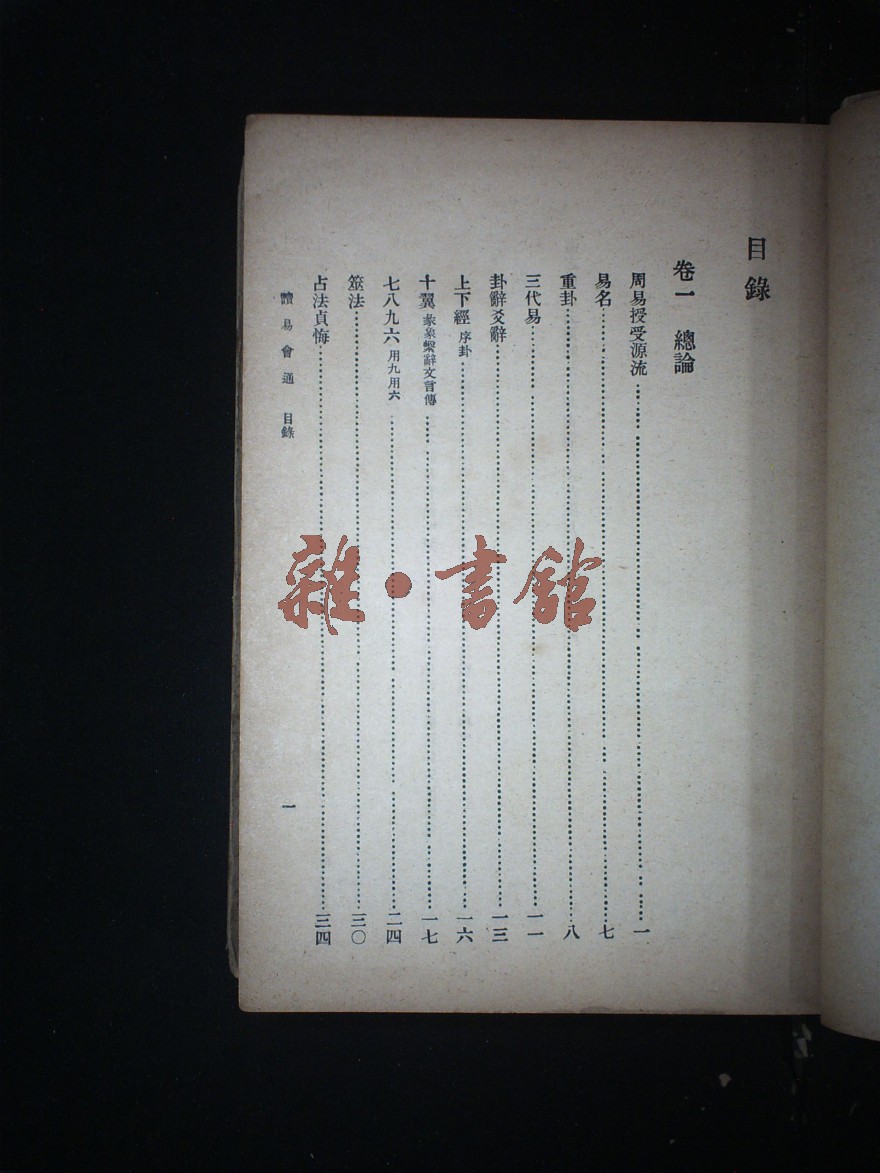 目錄
卷一 總論
周易授受源流……一
易名……七
重卦……八
三代易……一一
卦辭爻辭……一三
上下經 序卦……一六
十翼 彖象繫辭文言傳……一七
七八九六 用九用六……二四
筮法……三〇
占法貞悔……三四
讀易會通 目錄 一
雜·書館